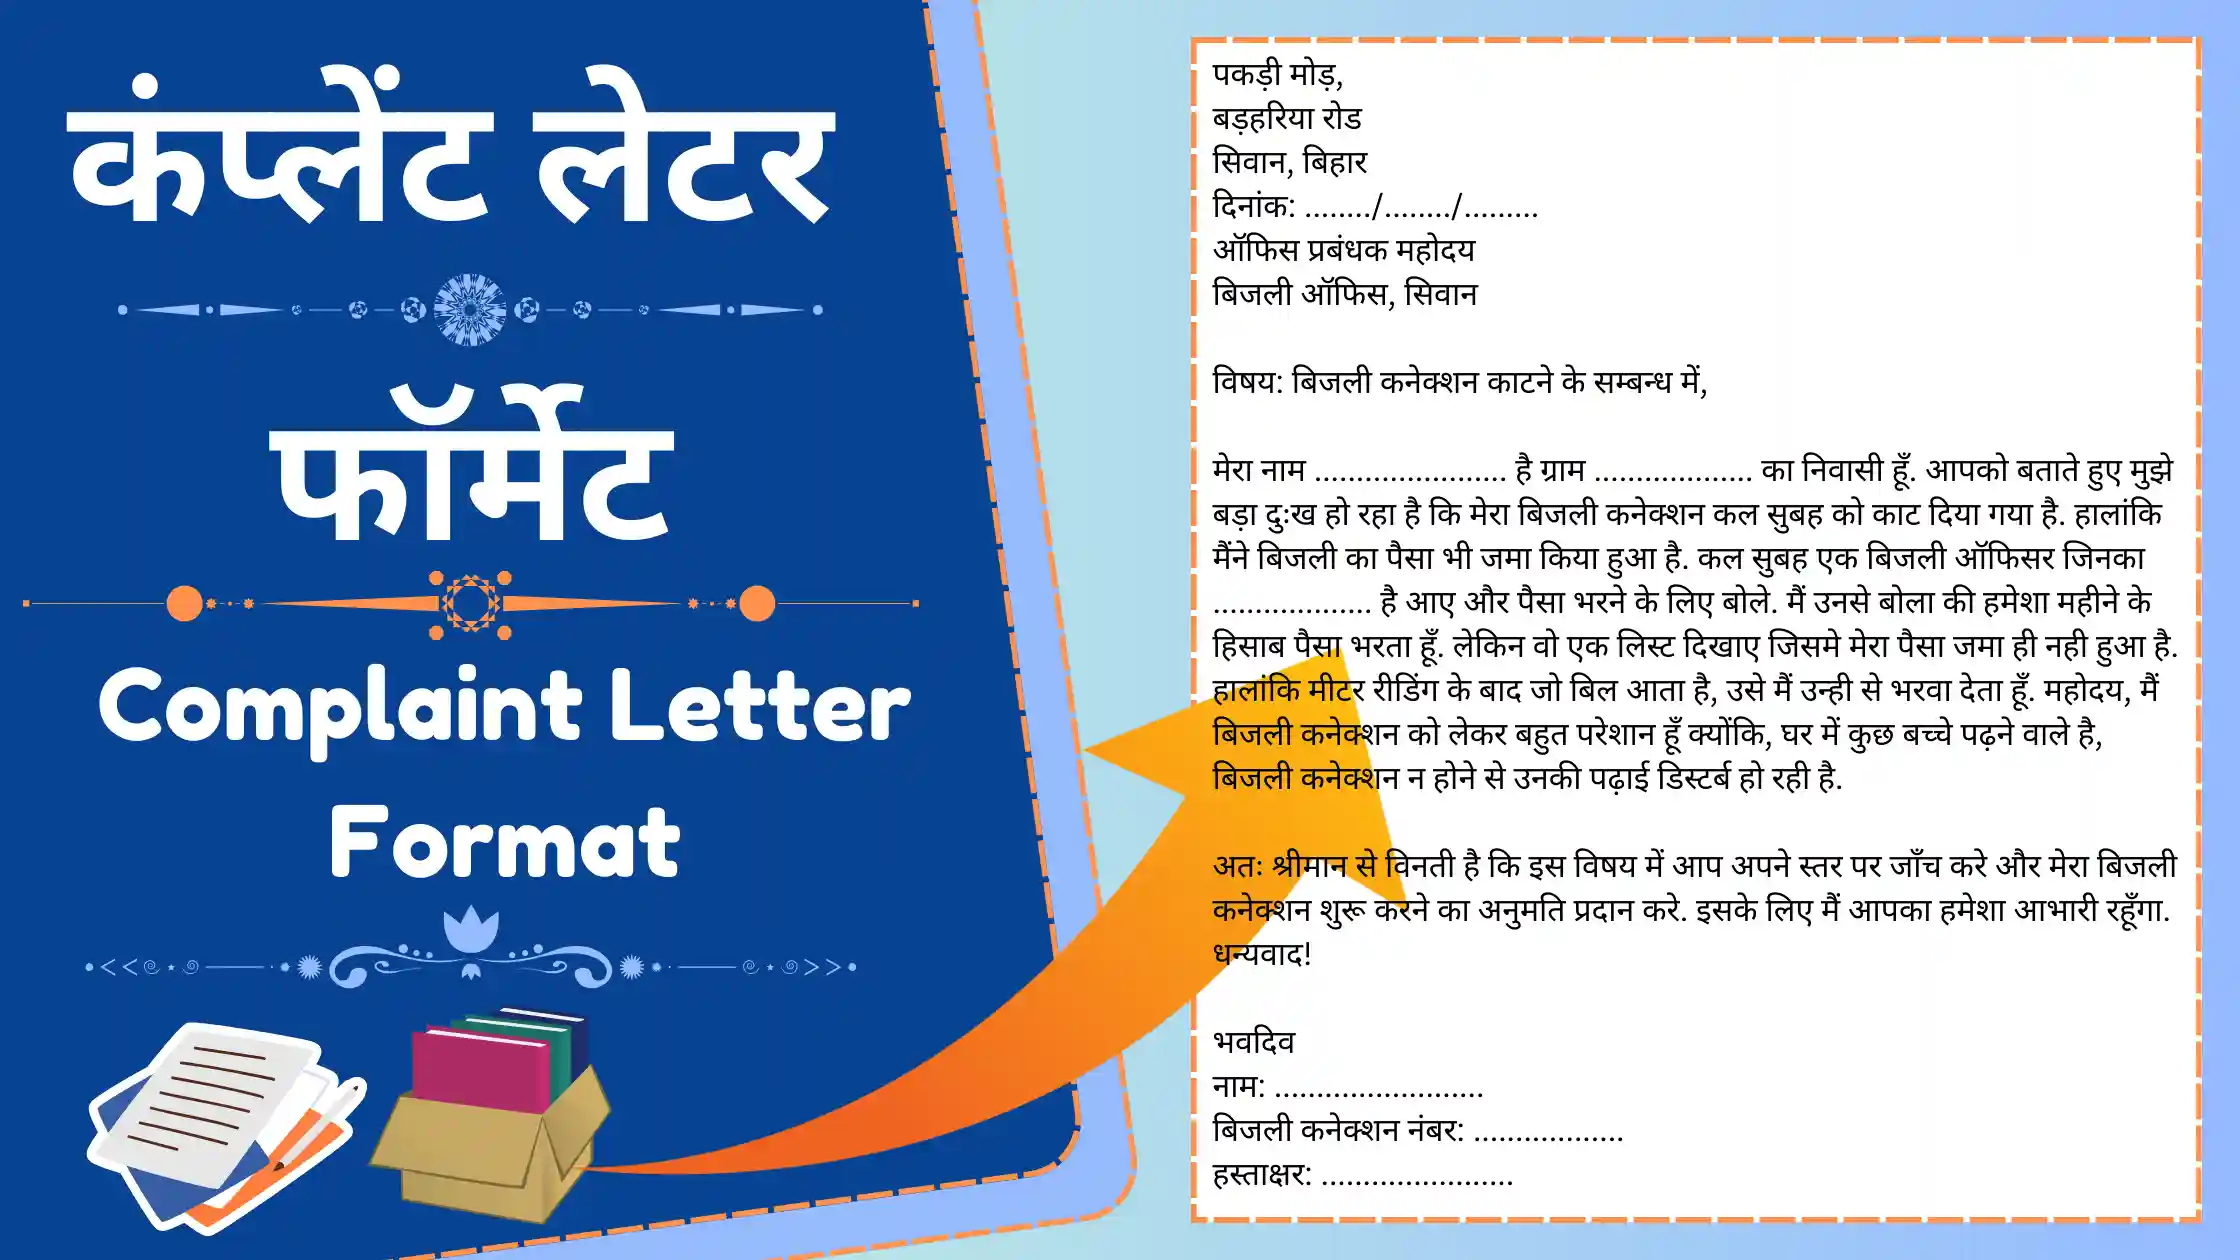 कंप्लेंट लेटर
फॉर्मेट
Complaint Letter
Format
पकड़ी मोड़,
बड़हरिया रोड
सिवान, बिहार
दिनांक: ......../......../.........
ऑफिस प्रबंधक महोदय
बिजली ऑफिस, सिवान
विषय: बिजली कनेक्शन काटने के सम्बन्ध में,
मेरा नाम ....................... है ग्राम ................... का निवासी हूँ. आपको बताते हुए मुझे
बड़ा दुःख हो रहा है कि मेरा बिजली कनेक्शन कल सुबह को काट दिया गया है. हालांकि
मैंने बिजली का पैसा भी जमा किया हुआ है. कल सुबह एक बिजली ऑफिसर जिनका
................... है आए और पैसा भरने के लिए बोले. मैं उनसे बोला की हमेशा महीने के
हिसाब पैसा भरता हूँ. लेकिन वो एक लिस्ट दिखाए जिसमे मेरा पैसा जमा ही नही हुआ है.
हालांकि मीटर रीडिंग के बाद जो बिल आता है, उसे मैं उन्ही से भरवा देता हूँ. महोदय, मैं
बिजली कनेक्शन को लेकर बहुत परेशान हूँ क्योंकि, घर में कुछ बच्चे पढ़ने वाले है,
बिजली कनेक्शन न होने से उनकी पढ़ाई डिस्टर्ब हो रही है.
अतः श्रीमान से विनती है कि इस विषय में आप अपने स्तर पर जाँच करे और मेरा बिजली
कनेक्शन शुरू करने का अनुमति प्रदान करे. इसके लिए मैं आपका हमेशा आभारी रहूँगा.
धन्यवाद!
भवदिव
नाम: .........................
बिजली कनेक्शन नंबर: ..................
हस्ताक्षर: .......................